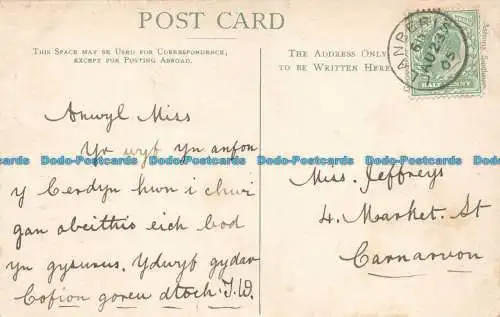 POST CARD
THIS SPACE MAY BE USED FOR CORRESPONDENCE,
EXCEPT FOR POSTING ABROAD.
Anwyl Miss
Yr wyf yn anfon
y Cerdyn hwn i chwi
gan obeithio eich bod
yn gysurus. Ydwyf gyda'r
Cofion goreu
THE ADDRESS ONLY
TO BE WRITTEN HERE.
LLANBERIS
AU 23
05
HALFPENNY
Miss. Jeffreys
4. Market. St
Carnarvon
Dodo-Postcards Dodo-Postcards Dodo-Postcards Dodo-Postcards